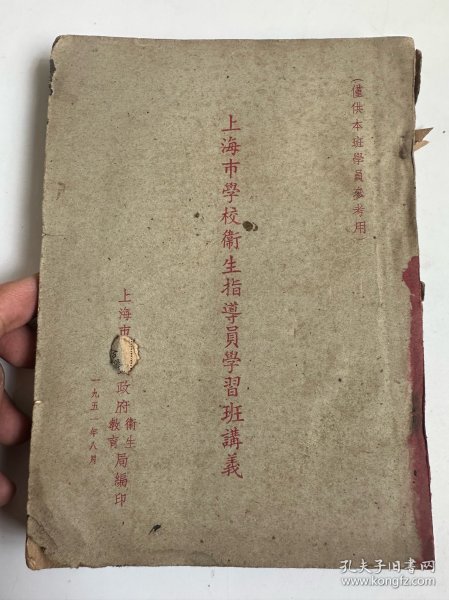 (僅供本班學員參考用)
上海市學校衛生指導員學習班講義
上海市 政府衛生教育局編印
一九五一年八月
孔夫子旧书网
www.kongfz.com